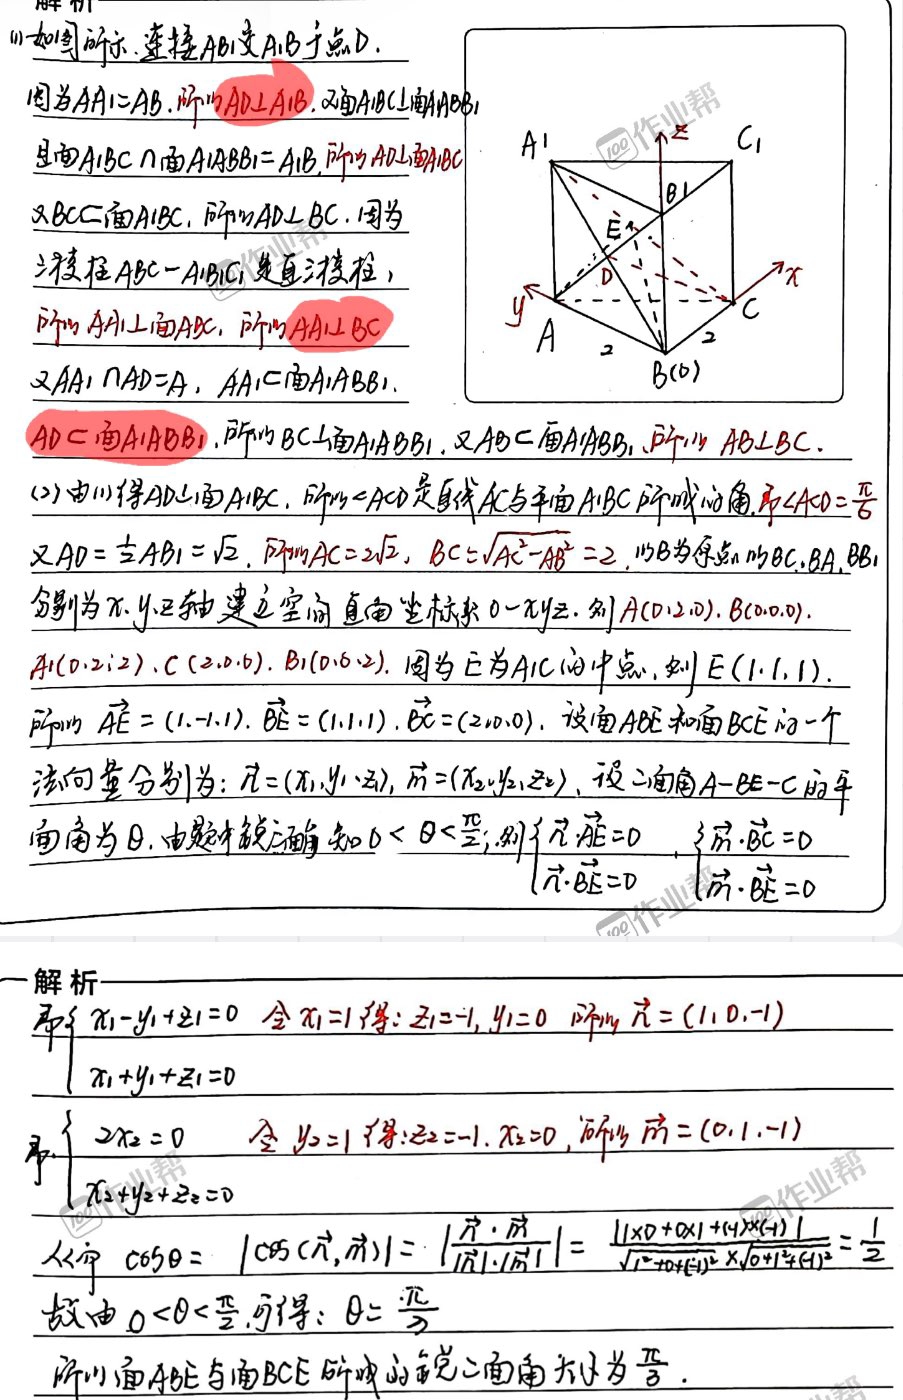 解析
(1)如图所示.连接AB1交A1B于点D.
因为AA1=AB.所以AD⊥A1B.又面A1BC⊥面A1ABB1
且面A1BC∩面A1ABB1=A1B.所以AD⊥面A1BC
又BC⊂面A1BC,所以AD⊥BC.因为
三棱柱ABC-A1B1C1是直三棱柱,
所以AA1⊥面ABC,所以AA1⊥BC
又AA1∩AD=A,AA1⊂面A1ABB1.
AD⊂面A1ABB1,所以BC⊥面A1ABB1,又AB⊂面A1ABB1,所以AB⊥BC.
A1
z
C1
B1
E
D
x
y
A
C
2
2
B(0)
(2)由(1)得AD⊥面A1BC,所以∠ACD是直线AC与平面A1BC所成的角.即∠ACD=π/6
又AD=½AB1=√2,所以AC=2√2,BC=√AC²-AB²=2,以B为原点以BC,BA,BB1
分别为x.y.z轴建立空间直角坐标系0-xyz.则A(0.2.0).B(0.0.0).
A1(0.2.2).C(2.0.0).B1(0.0.2).因为E为A1C的中点,则E(1.1.1).
所以AE=(1.-1.1).BE=(1.1.1).BC=(2,0,0),设面ABE和面BCE的一个
法向量分别为:n=(x1,y1,z1),m=(x2,y2,z2),设二面角A-BE-C的平
面角为θ.由题中锐二面角知0<θ<π/2;则{n·AE=0 n·BE=0,{m·BC=0 m·BE=0
100作业帮
100作业帮
100作业帮
解析
即{x1-y1+z1=0 令x1=1得:z1=-1,y1=0 所以n=(1,0,-1)
x1+y1+z1=0
即{2x2=0 令y2=1得:z2=-1.x2=0,所以m=(0.1.-1)
x2+y2+z2=0
100作业帮
100作业帮
cosθ=|cos(n,m)|=|n·m/|n|·|m||=|1×0+0×1+(-1)×(-1)|/√1²+0+(-1)²×√0+1²+(-1)²=1/2
故由0<θ<π/2,可得:θ=π/3
所以面ABE与面BCE所成的锐二面角大小为π/3.
作业帮